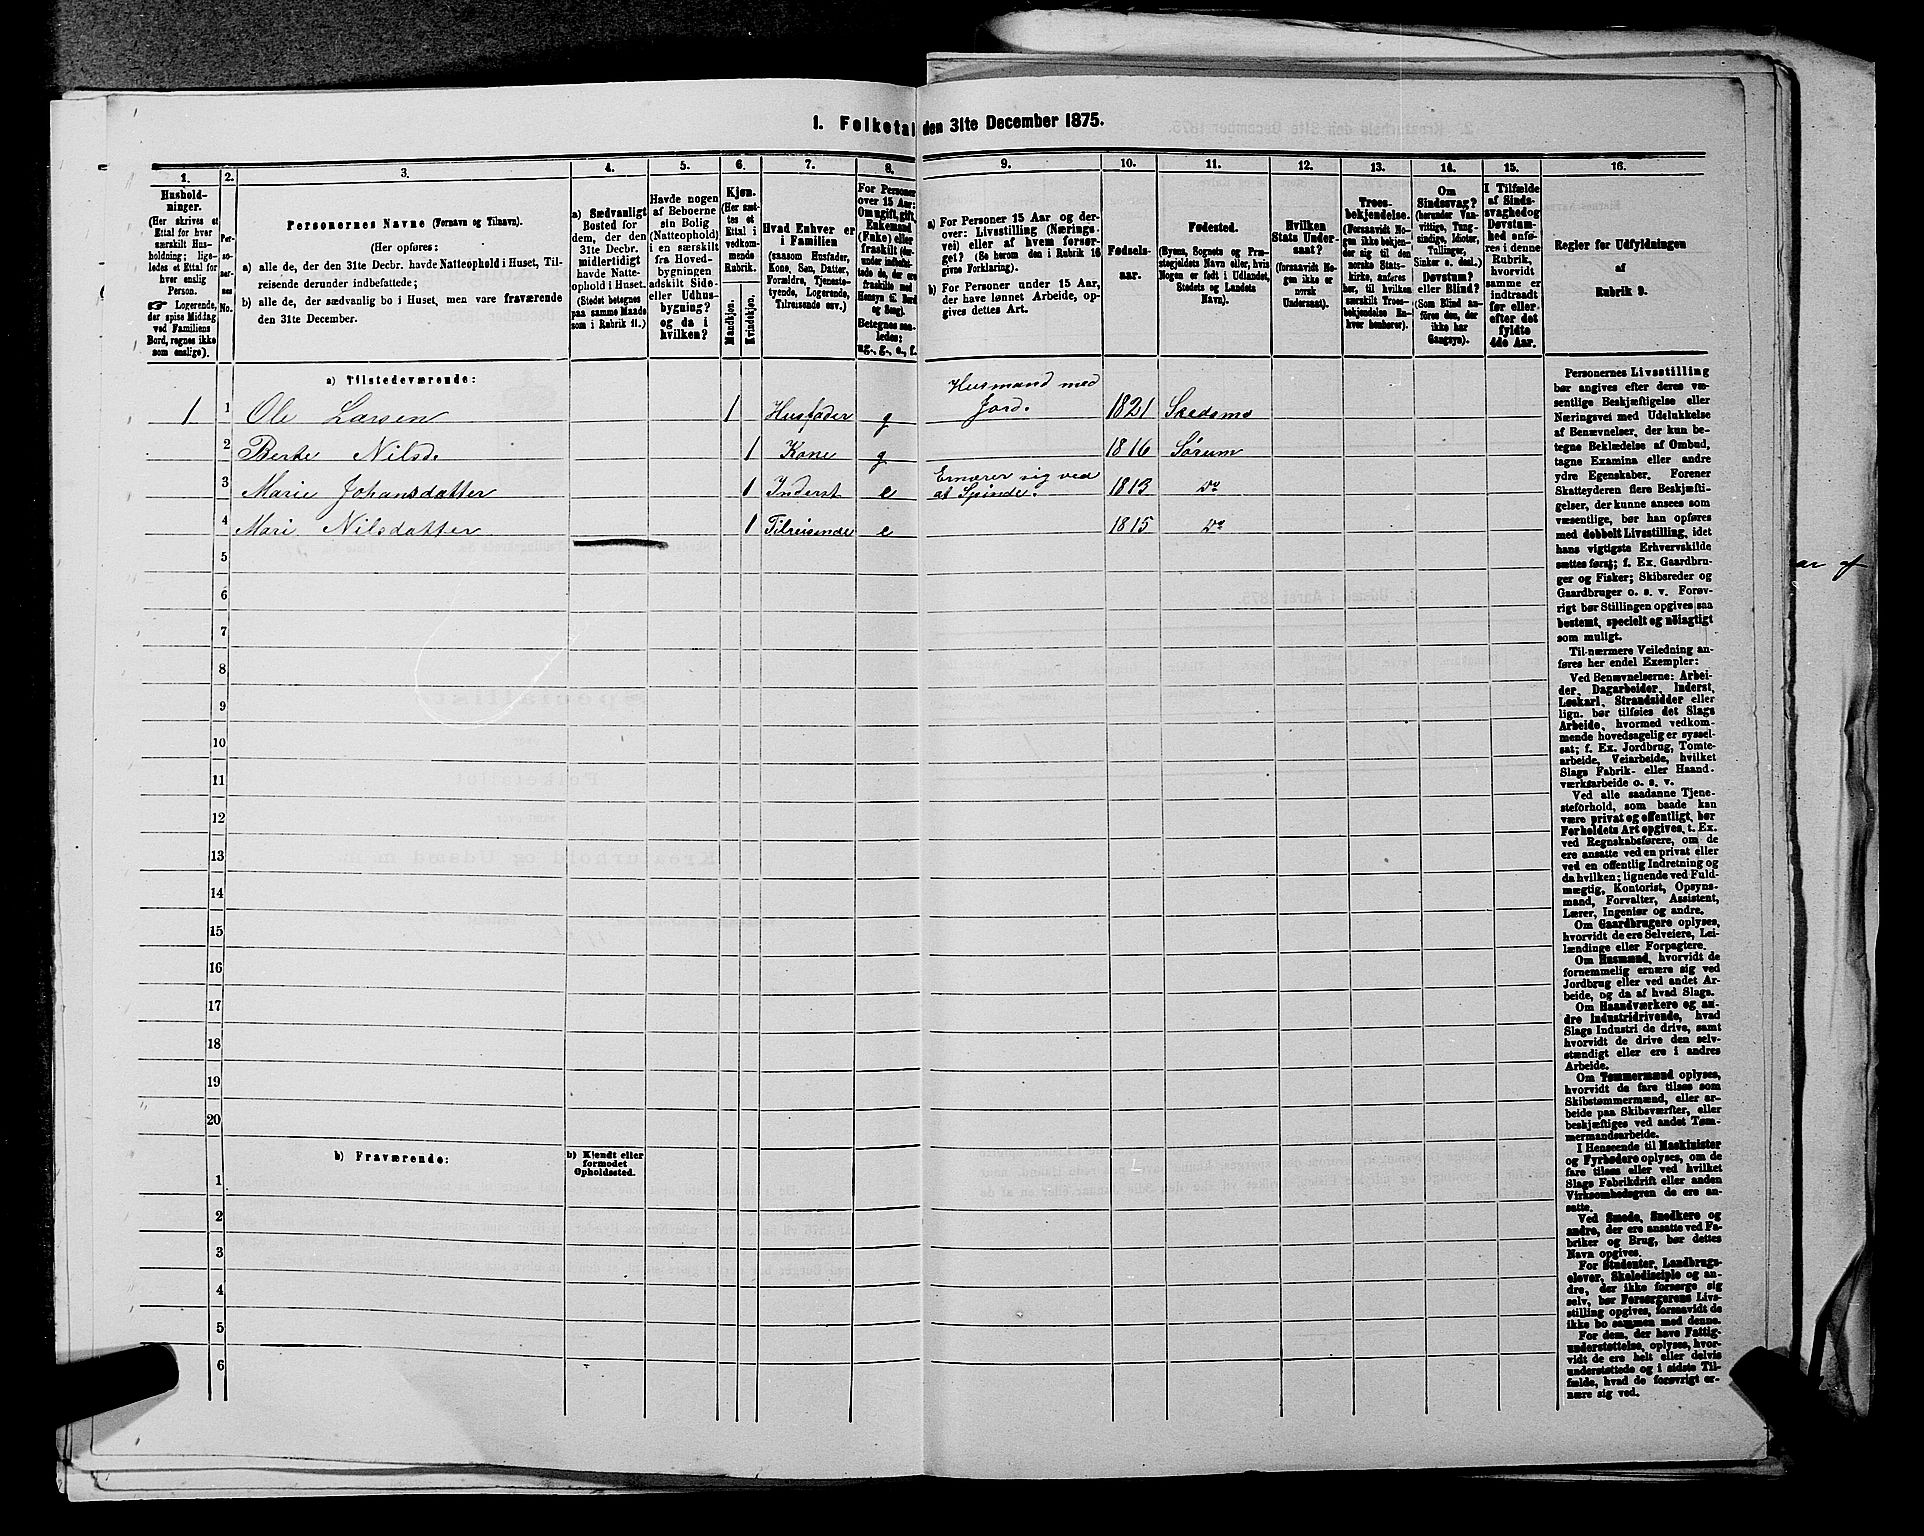 1. Folketal den 31te December 1875.
1. 2. 3. 4. 5. 6. 7. 8. 9. 10. 11. 12. 13. 14. 15. 16.
Hushold-
ninger.
(Her skrives et
Ettal for hver
særskilt Hus-
holdning; lige-
ledes et Ettal for
hver enslig
Person.
☞ Logerende,
der spise Middag
ved Familiens
Bord, regnes ikke
som enslige).
Per-
so-
ner-
nes
No.
Personernes Navne (Fornavn og Tilnavn).
(Her opføres:
a) alle de, der den 31te Decbr. havde Natteophold i Huset, Til-
reisende derunder indbefattede;
b) alle de, der sædvanlig bo i Huset, men vare fraværende
den 31te December.
a) Sædvanligt
Bosted for
dem, der den
31te Decbr.
midlertidigt
havde Natte-
ophold i Huset.
(Stedet betegnes
paa samme Maade
som i Rubrik 11.)
Havde nogen
af Beboerne
sin Bolig
(Natteophold)
i en særskilt
fra Hoved-
bygningen
adskilt Side-
eller Udhus-
bygning?
og da i
hvilken?
Kjøn.
(Her sæt-
tes et
Ettal i
vedkom-
mende
Rubrik.
Mandkjøn.
Kvindekjøn.
Hvad Enhver er
i Familien
(saasom Husfader,
Kone, Søn, Datter,
Forældre, Tjeneste-
tyende, Logerende,
Tilreisende osv.)
For Personer
over 15 Aar:
Om ugift, gift,
Enkemand
(Enke) eller
fraskilt (der-
under indbefat-
tede de, der ere
fraskilte med
Hensyn til Bord
og Seng).
Betegnes saa-
ledes:
ug., g., e., f.
a) For Personer 15 Aar og der-
over: Livsstilling (Nærings-
vei) eller af hvem forsør-
get? (Se herom den i Rubrik 16
givne Forklaring).
b) For Personer under 15 Aar,
der have lønnet Arbeide, op-
gives dettes Art.
Fødsels-
aar.
Fødested.
(Byens, Sognets og Præ-
stegjeldets Navn eller, hvis
Nogen er født i Udlandet,
Stedets og Landets
Navn).
Hvilken
Stats Under-
saat?
(forsaavidt No-
gen ikke er
norsk
Undersaat).
Troes-
bekjendelse.
(Forsaavidt No-
gen ikke bekjen-
der sig til den
norske Stats-
kirke, anføres
her, til hvilken
særskilt Troes-
bekjendelse En-
hver henhører).
Om
Sindssvag?
(herunder Van-
vittige, Tung-
sindige, Idioter,
Tullinger,
Sinker o. desl.)
Døvstum?
eller Blind?
(Som Blind an-
føres den, der
ikke har
Gangsyn).
I Tilfælde
af Sinds-
svaghed og
Døvstum-
hed anfø-
res i denne
Rubrik,
hvorvidt
samme er
indtraadt
før eller
efter det
fyldte
4de Aar.
Regler for Udfyldningen
af
Rubrik 9.
a) Tilstedeværende:
1 1 Ole Larsen 1 Husfader g Husmand med
Jord. 1821 Skedsmo
2 Berte Nilsd. 1 Kone g 1816 Sørum
3 Marie Johansdatter 1 Inderst e Ernærer sig ved
at Spinde. 1813 Do
4 Mari Nilsdatter 1 Tilreisende e 1815 Do
5
6
7
8
9
10
11
12
13
14
15
16
17
18
19
20
b) Fraværende:
b) Kjendt eller
formodet
Opholdssted.
1
2
3
4
5
6
Personernes Livsstilling
bør angives efter deres væ-
sentlige Beskjæftigelse eller
Næringsvei med Udelukkelse
af Benævnelser, der kun be-
tegne Beklædelse af Ombud,
tagne Examina eller andre
ydre Egenskaber. Forener
Skatteyderen flere Beskjæfti-
gelser, der kunne ansees som
væsentlige, bør han opføres
med dobbelt Livsstilling, idet
hans vigtigste Erhvervskilde
sættes først; f. Ex. Gaardbru-
ger og Fisker; Skibsreder og
Gaardbruger o. s. v. Forøv-
rigt bør Stillingen opgives saa
bestemt, specielt og nøiagtigt
som muligt.
Til nærmere Veiledning an-
føres her endel Exempler:
Ved Benævnelserne: Arbei-
der, Dagarbeider, Inderst,
Løskarl, Strandsidder eller
lign. bør tilføies det Slags
Arbeide, hvormed vedkom-
mende hovedsagelig er syssel-
sat; f. Ex. Jordbrug, Tomte-
arbeide, Veiarbeide, hvilket
Slags Fabrik- eller Haand-
værksarbeide o. s. v.
Ved alle saadanne Tjene-
steforhold, som baade kan
være privat og offentligt, bør
Forholdets Art opgives, t. Ex.
ved Regnskabsførere, om de
ere ansatte ved en privat eller
ved en offentlig Indretning og
da hvilken; lignende ved Fuld-
mægtig, Kontorist, Opsyns-
mand, Forvalter, Assistent,
Lærer, Ingeniør og andre.
Om Gaardbrugere oplyses,
hvorvidt de ere Selveiere, Lei-
lændinge eller Forpagtere.
Om Husmænd, hvorvidt de
fornemmelig ernære sig ved
Jordbrug eller ved andet Ar-
beide, og da af hvad Slags.
Om Haandværkere og an-
dre Industridrivende, hvad
Slags Industri de drive, samt
hvorvidt de drive den selv-
stændigt eller ere i andres
Arbeide.
Om Tømmermænd oplyses,
hvorvidt de fare tilsøs som
Skibstømmermænd, eller ar-
beide paa Skibsværfter, eller
beskjæftiges ved andet Tøm-
mermandsarbeide.
I Henseende til Maskinister
og Fyrbødere oplyses, om de
fare tilsøs eller ved hvilket
Slags Fabrikdrift eller anden
Virksomhedsgren de ere an-
satte.
Ved Smede, Snedkere og
andre, der ere ansatte ved Fa-
briker og Brug, bør dettes
Navn opgives.
For Studenter, Landbrugs-
elever, Skoledisciple og an-
dre, der ikke forsørge sig
selv, bør Forsørgerens Livs-
stilling opgives, forsaavidt de
ikke bo sammen med denne.
For dem, der have Fattig-
understøttelse, oplyses, hvor-
vidt de ere helt eller delvis
understøttede og i sidste Til-
fælde, hvad de forøvrigt er-
nære sig ved.